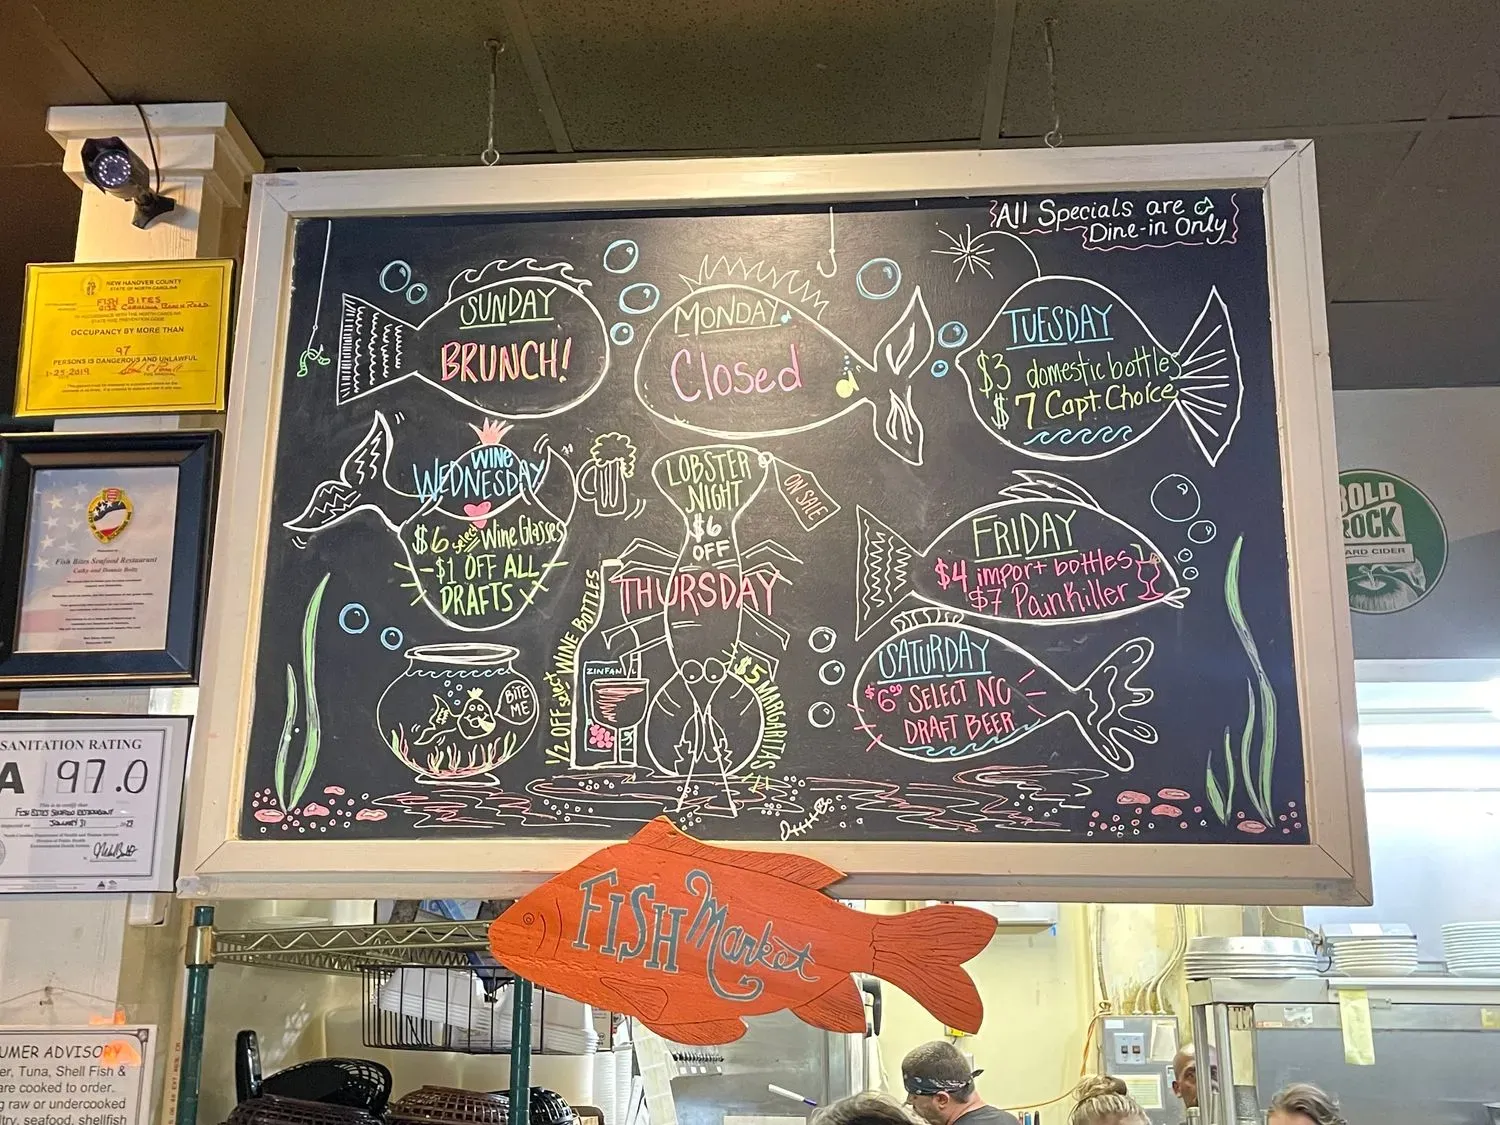 All Specials are
Dine-in Only
SUNDAY
BRUNCH!
MONDAY
Closed
TUESDAY
$3 domestic bottle
$7 Capt. Choice
WINE
WEDNESDAY
$6 select Wine Glasses
$1 OFF ALL
DRAFTS
LOBSTER
NIGHT
$6
OFF
ON SALE
THURSDAY
1/2 OFF select WINE BOTTLES
ZINFAN
$5 MARGARITAS
FRIDAY
$4 import bottles
$7 PainKiller
SATURDAY
$6.00 SELECT NC
DRAFT BEER
BITE
ME
FISH Market
NEW HANOVER COUNTY
STATE OF NORTH CAROLINA
FISH BITES
OCCUPANCY BY MORE THAN
97
PERSONS IS DANGEROUS AND UNLAWFUL
1-25-2019
Fish Bites Seafood Restaurant
SANITATION RATING
A 97.0
FISH BITES SEAFOOD RESTAURANT
UMER ADVISORY
er, Tuna, Shell Fish &
are cooked to order.
g raw or undercooked
ltry, seafood, shellfish
BOLD
ROCK
HARD CIDER